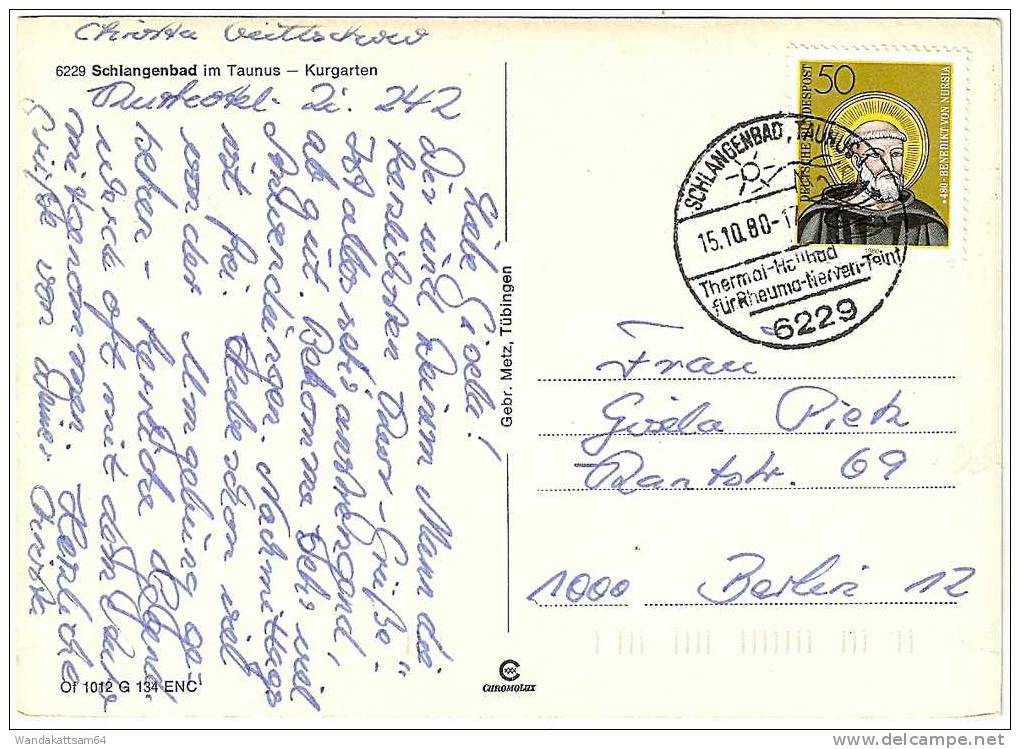 Christa
6229 Schlangenbad im Taunus – Kurgarten
Kurhotel - Zi. 242
Liebe Gisela!
Dir und Deinem Mann die
herzlichsten Kur-Grüße.
Ist alles sehr anstrengend,
ab gut. Bekomme sehr viel
Anwendungen. Nachmittags
ist frei. Habe schon viel
von der Umgebung ge-
sehen - herrliche Gegend
werde oft mit dem Auto
mitgenommen. Herzliche
Grüße von Deiner Christa
Gebr. Metz, Tübingen
DEUTSCHE BUNDESPOST
50
480 · BENEDIKT VON NURSIA
1980
SCHLANGENBAD, TAUNUS
15.10.80-17
Thermal-Heilbad
für Rheuma-Nerven-Teint
6229
Frau
Gisela Pietz
Kantstr. 69
1000 Berlin 12
Of 1012 G 134 ENC
CHROMOLUX
Wandakattsam64
www.delcampe.net